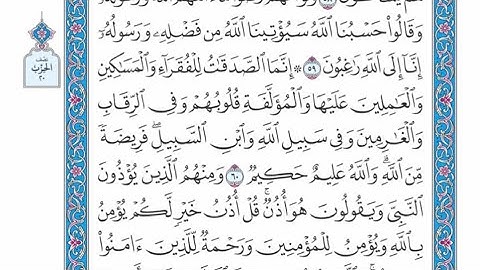 وَقَالُوا۟ حَسْبُنَا ٱللَّهُ سَيُؤْتِينَا ٱللَّهُ مِن فَضْلِهِۦ وَرَسُولُهُۥٓ
إِنَّآ إِلَى ٱللَّهِ رَٰغِبُونَ ٥٩ ۞ إِنَّمَا ٱلصَّدَقَٰتُ لِلْفُقَرَآءِ وَٱلْمَسَٰكِينِ
وَٱلْعَٰمِلِينَ عَلَيْهَا وَٱلْمُؤَلَّفَةِ قُلُوبُهُمْ وَفِى ٱلرِّقَابِ
وَٱلْغَٰرِمِينَ وَفِى سَبِيلِ ٱللَّهِ وَٱبْنِ ٱلسَّبِيلِۖ فَرِيضَةً
مِّنَ ٱللَّهِۗ وَٱللَّهُ عَلِيمٌ حَكِيمٌ ٦٠ وَمِنْهُمُ ٱلَّذِينَ يُؤْذُونَ
ٱلنَّبِىَّ وَيَقُولُونَ هُوَ أُذُنٌۚ قُلْ أُذُنُ خَيْرٍ لَّكُمْ يُؤْمِنُ
بِٱللَّهِ وَيُؤْمِنُ لِلْمُؤْمِنِينَ وَرَحْمَةٌ لِّلَّذِينَ ءَامَنُوا۟
نصف
الحزب
٢٠